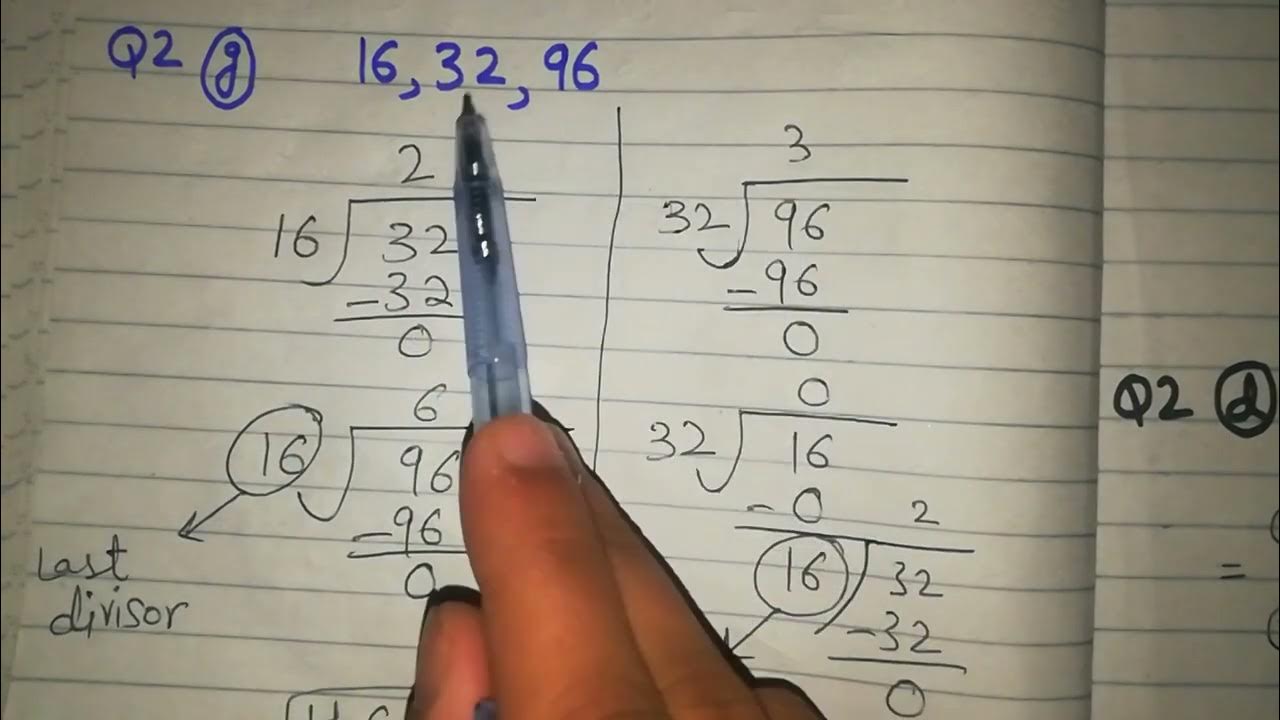 Q2 (g) 16, 32, 96
2
16 32
-32
0
6
16 96
-96
0
Last
divisor
3
32 96
-96
0
0
32 16
-0 2
16 32
-32
0
Q2 (d)
=